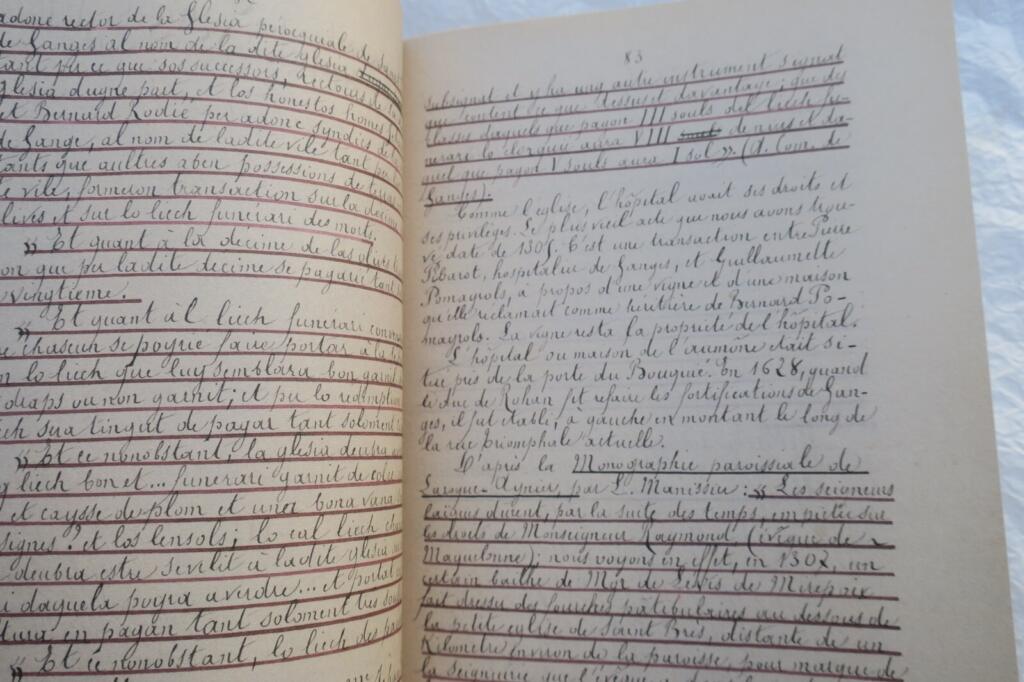 adonc rector de la Glesia perroequiale de
de Ganges al nom de la dite yglesia
tant per ce que sos successors, rectours de la
glesia dugne part, et los honestos homes
et Bernard Rodié per adonc syndics de
de Gange, al nom de ladite vile tant per
tants que aultres aben possessions de
e vile, formeron transaction sur la decime
lives et sur lo liech funérari des morts.
» Et quant à la décime de las olives
on que per ladite decime se pagarie tant
vingtieme.
» Et quant àl liech funérari
e chascun se poyrie faire portar à la
n lo liech que luy semblara bon garnit
draps ou non garnit; et per lo redemption
ech sera tingut de pagar tant soloment
» Et ce nonobstant, la yglesia deubra
g liech bon et... funérari garnit de
et caysse de plom et uner bona vana
signes? et los lensols; lo cal liech
deubra estre sevelit à ladite yglesia
i daquela poyra averdre... et portat
tura en pagan tant soloment tres
» Et ce nonobstant, lo liech des
83
subsignat et y ha ung autre instrument signat
que content ce que dessus et davantage; que des
classes daquels que pagon III souls del liech fu-
nerari lo clergue aura VIII de nies et da-
quel que pagon V souls aura I sol » (A. Com. de
Ganges).
Comme l'église, l'hôpital avait ses droits et
ses privilèges. Le plus vieil acte que nous avons trou-
vé date de 1305. C'est une transaction entre Pierre
Pibarot, hospitalier de Ganges, et Guillaumette
Pomayrols, à propos d'une vigne et d'une maison
qu'elle réclamait comme héritière de Bernard Po-
mayrols. La vigne resta la propriété de l'hôpital.
L'hôpital ou maison de l'aumône était si-
tué près de la porte du Bouquié. En 1628, quand
le duc de Rohan fit refaire les fortifications de Gan-
ges, il fut établi, à gauche en montant le long de
la rue Biomphale actuelle.
D'après la Monographie paroissiale de
Laroque-Aynier, par L. Manissier: « Les seigneurs
laïques durent, par la suite des temps, empiéter sur
les droits de Monseigneur Raymond (évêque de
Maguelonne); nous voyons en effet, en 1302, un
certain baille de Mgr de Lévis de Mirepoix
fait dresser des fourches patibulaires au dessous de
la petite église de Saint Brès, distante de un
kilomètre environ de la paroisse, pour marque de
la seigneurie que l'évêque